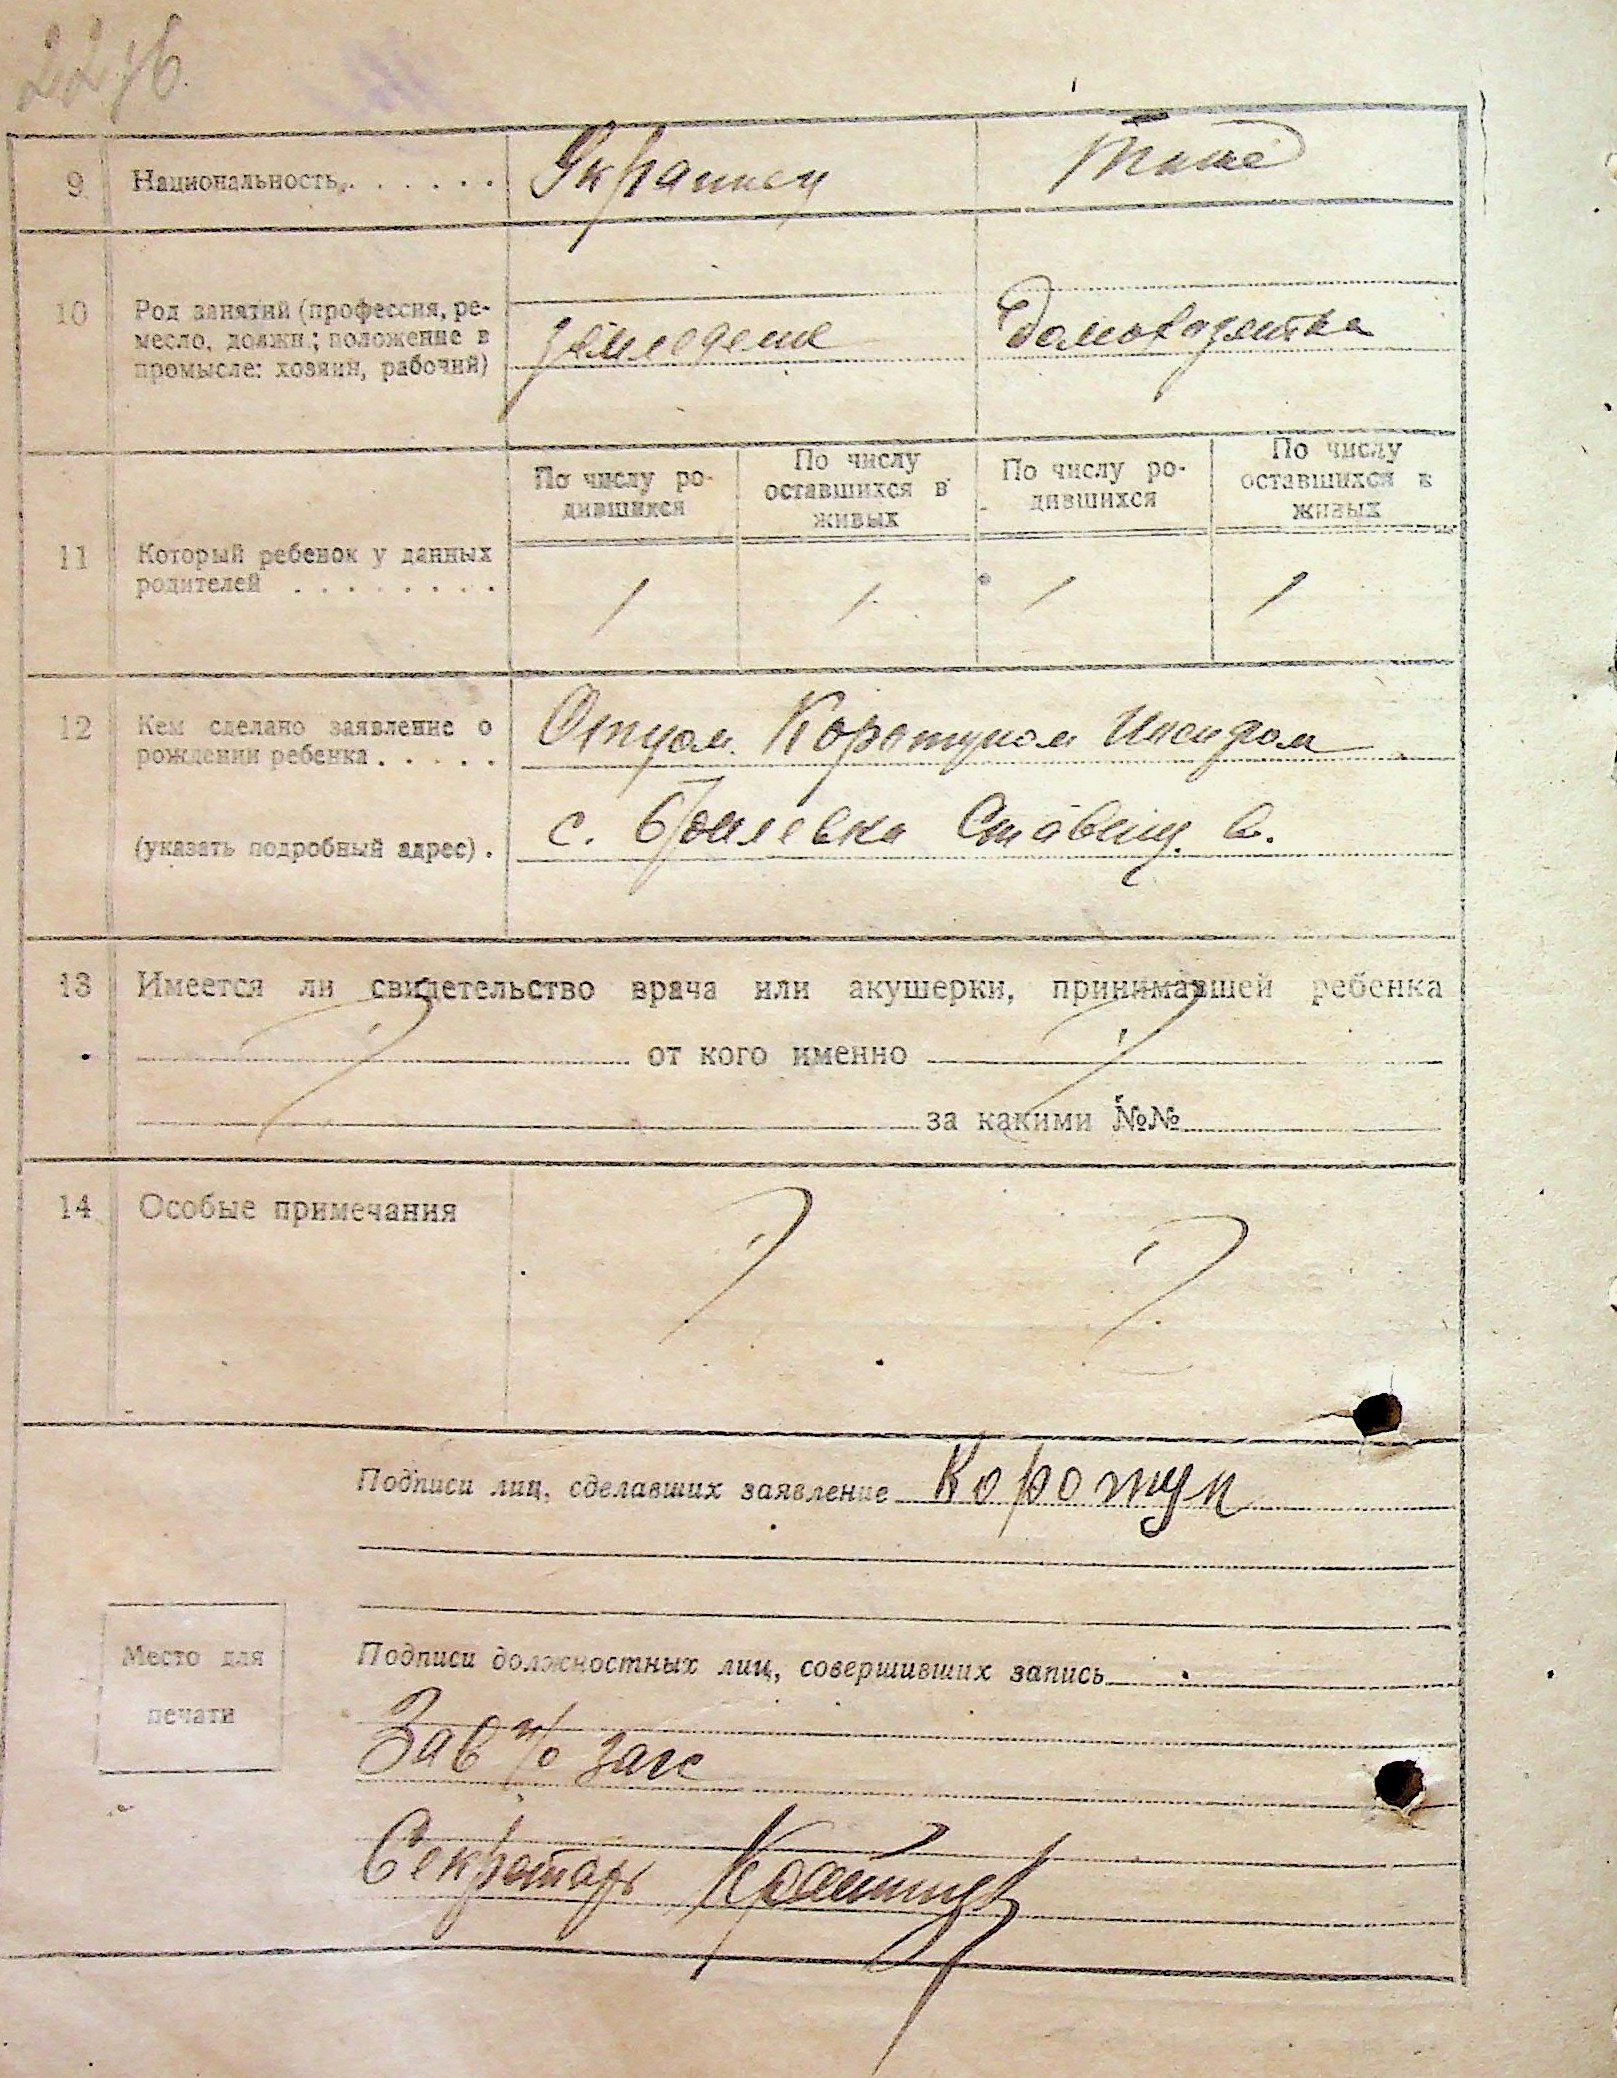 9 Национальность. . . . . . Украинец Тоже
10 Род занятий (профессия, ре-
месло, должн.; положение в
промысле: хозяин, рабочий)
земледелие Домохозяйка
По числу ро-
дившихся
По числу
оставшихся в
живых
По числу ро-
дившихся
По числу
оставшихся в
живых
11 Который ребенок у данных
родителей . . . . . . . .
1 1 1 1
12 Кем сделано заявление о
рождении ребенка . . . . .
Отцом Коротуном
(указать подробный адрес) .
с.
13 Имеется ли свидетельство врача или акушерки, принимавшей ребенка
? от кого именно ?
за какими №№
14 Особые примечания ? ?
Подписи лиц, сделавших заявление Коротун
Место для
печати
Подписи должностных лиц, совершивших запись
Зав п/о загс
Секретарь